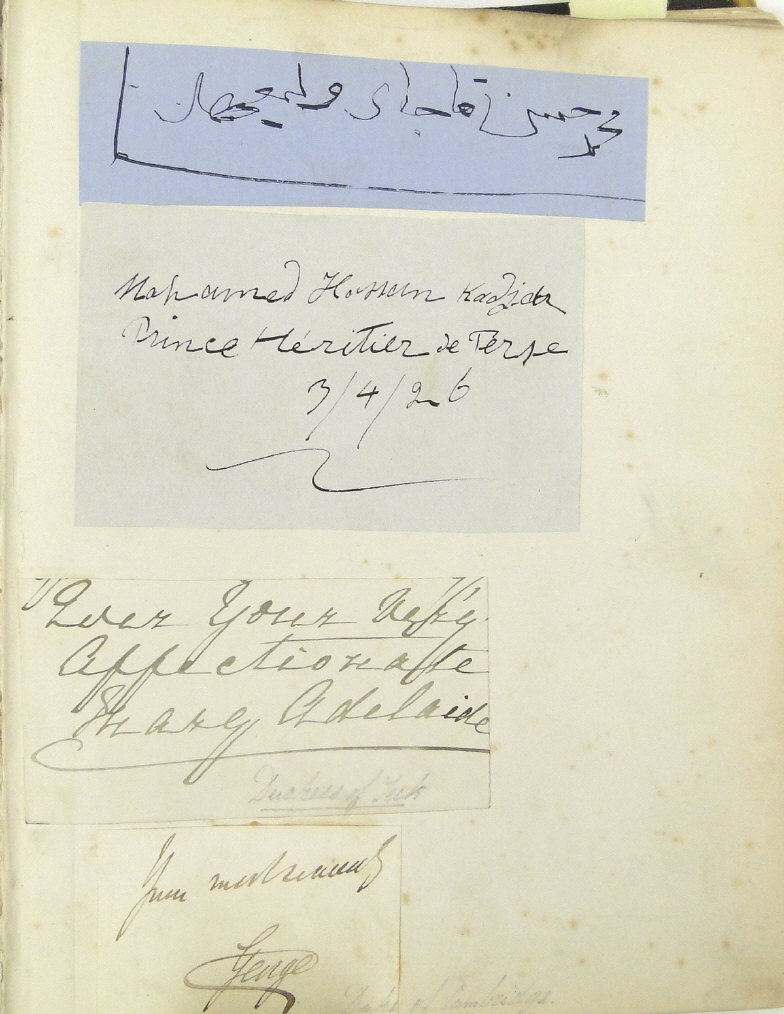 محمد حسن قاجار ولیعهد
Mohamed Hassan Kadjar
Prince Héritier de Perse
3/4/26
Ever Yours Very
Affectionate
Mary Adelaide
Duchess of Teck
Yours most sincerely
George
Duke of Cambridge.